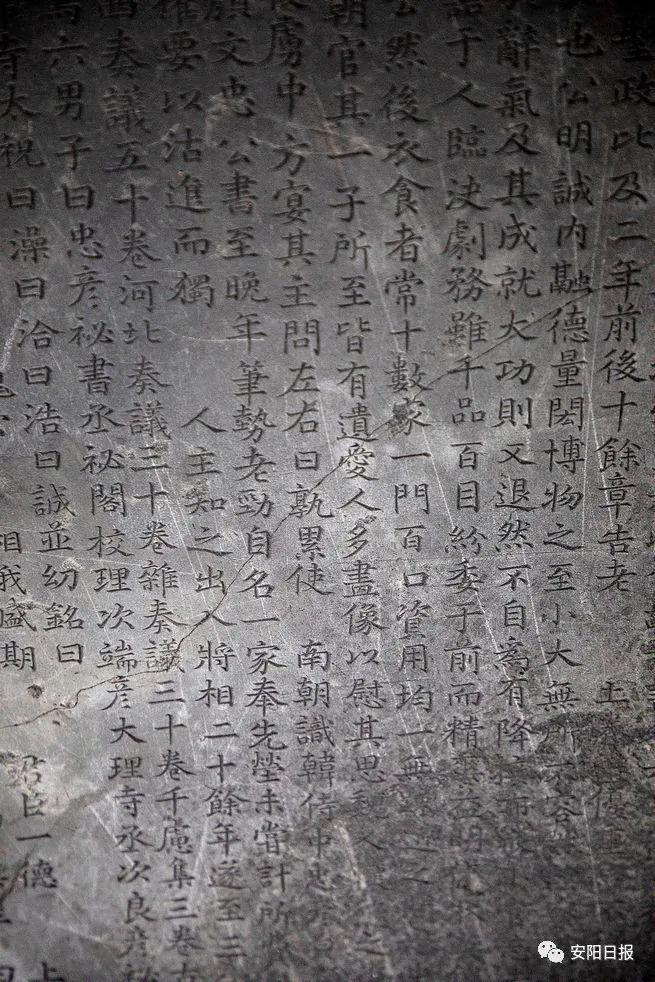 聖政比及二年前後十餘章告老 上
也公明誠內融德量閎博物之至小大無所不容
辭氣及其成就大功則又退然不自為有降接
于人臨決劇務雖千品百目紛委于前而精
公然後衣食者常十數家一門百口資用均一無
朝官其一子所至皆有遺愛人多畫像以慰其思魏人 之
虜中方宴其主問左右曰孰累使 南朝識韓侍中
顏文忠公書至晚年筆勢老勁自名一家奉先塋未嘗計所
權要以沽進而獨 人主知之出入將相二十餘年遂至三
奏議五十卷河北奏議三十卷雜奏議三十卷千慮集三卷
六男子曰忠彥祕書丞祕閣校理次端彥大理寺丞次良彥祕
寺太祝曰澡曰治曰浩曰誠並幼銘曰
相我盛期 君臣一德 上
安阳日报